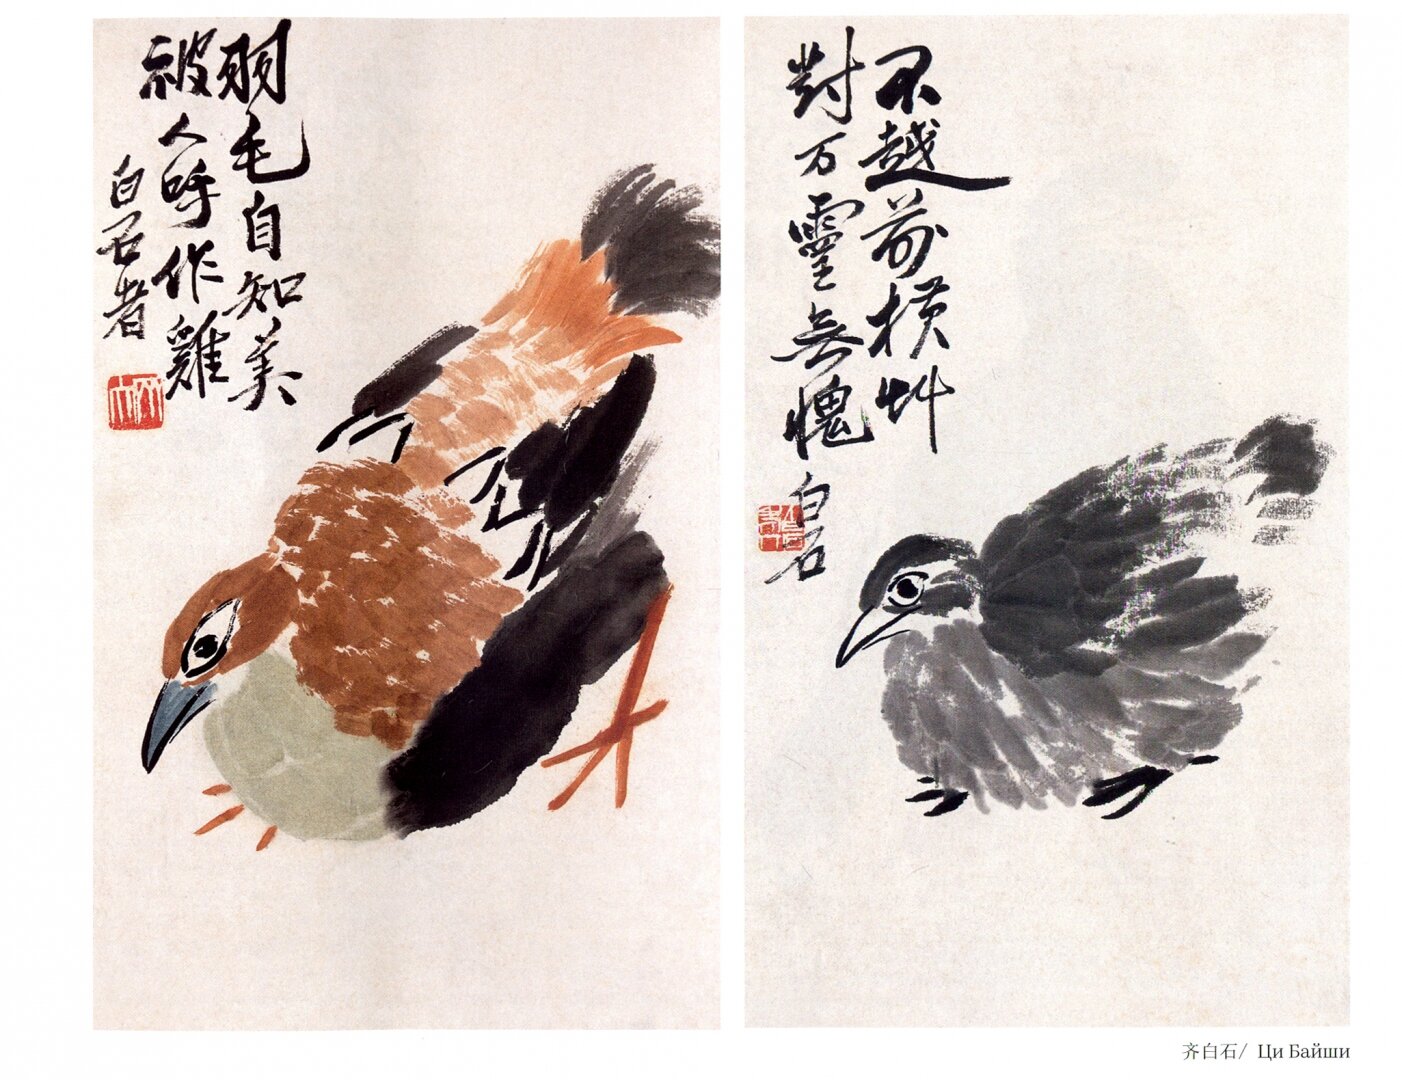 羽毛自知美
被人呼作雞
白石者
不越前橫艸
對万靈無愧
白石
齐白石/ Ци Байши